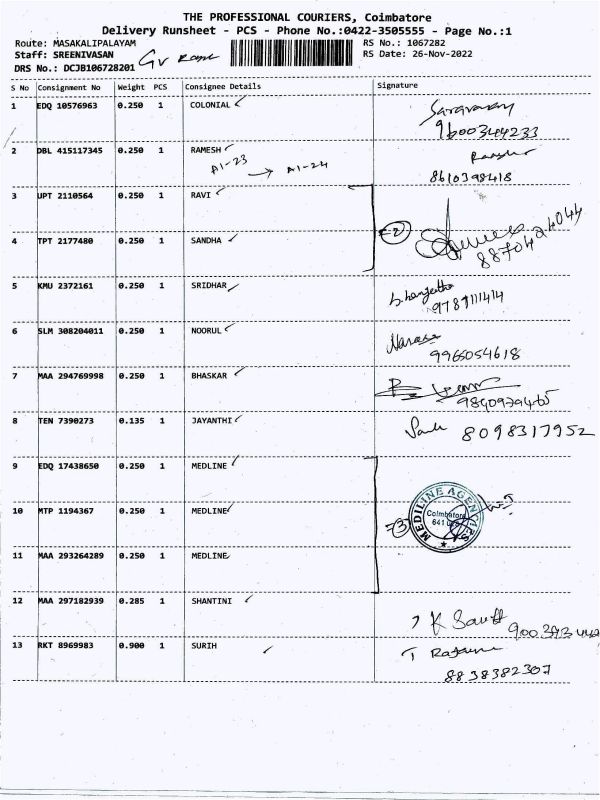 THE PROFESSIONAL COURIERS, Coimbatore
Delivery Runsheet - PCS - Phone No.:0422-3505555 - Page No.:1
Route: MASAKALIPALAYAM
Staff: SREENIVASAN
DRS No.: DCJB106728201
RS No.: 1067282
RS Date: 26-Nov-2022
S No Consignment No Weight PCS Consignee Details Signature
1 EDQ 10576963 0.250 1 COLONIAL
9600344233
2 DBL 415117345 0.250 1 RAMESH
A1-23 → A1-24
8610398418
3 UPT 2110564 0.250 1 RAVI
4 TPT 2177480 0.250 1 SANDHA
=2
8870424044
5 KMU 2372161 0.250 1 SRIDHAR
9789111414
6 SLM 308204011 0.250 1 NOORUL
9965054618
7 MAA 294769998 0.250 1 BHASKAR
8 TEN 7390273 0.135 1 JAYANTHI
8098317952
9 EDQ 17438650 0.250 1 MEDLINE
10 MTP 1194367 0.250 1 MEDLINE
=3
MEDILINE AGENCIES
Coimbatore
11 MAA 293264289 0.250 1 MEDLINE
12 MAA 297182939 0.285 1 SHANTINI
13 RKT 8969983 0.900 1 SURIH
8838382307